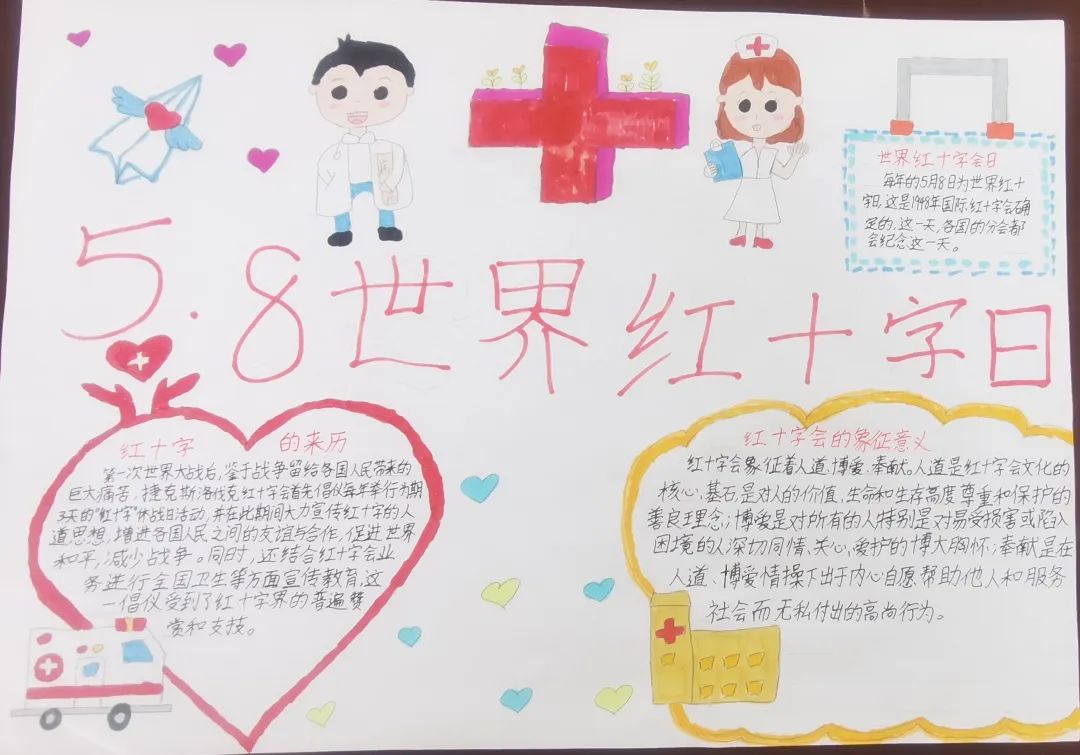 世界红十字会日
每年的5月8日为世界红十
字日,这是1948年国际红十字会确
定的,这一天,各国的分会都
会纪念这一天。
5.8世界红十字日
红十字的来历
第一次世界大战后,鉴于战争留给各国人民带来的
巨大痛苦,捷克斯洛伐克红十字会首先倡仪每年举行为期
3天的"红十字"休战日活动,并在此期间大力宣传红十字的人
道思想,增进各国人民之间的友谊与合作,促进世界
和平,减少战争。同时,还结合红十字会业
务进行全国卫生等方面宣传教育,这
一倡仪受到了红十字界的普遍赞
赏和支技。
红十字会的象征意义
红十字会象征着人道、博爱、奉献。人道是红十字会文化的
核心、基石,是对人的价值、生命和生存高度尊重和保护的
善良理念;博爱是对所有的人特别是对易受损害或陷入
困境的人深切同情、关心、爱护的博大胸怀;奉献是在
人道、博爱情操下出于内心自愿帮助他人和服务
社会而无私付出的高尚行为。